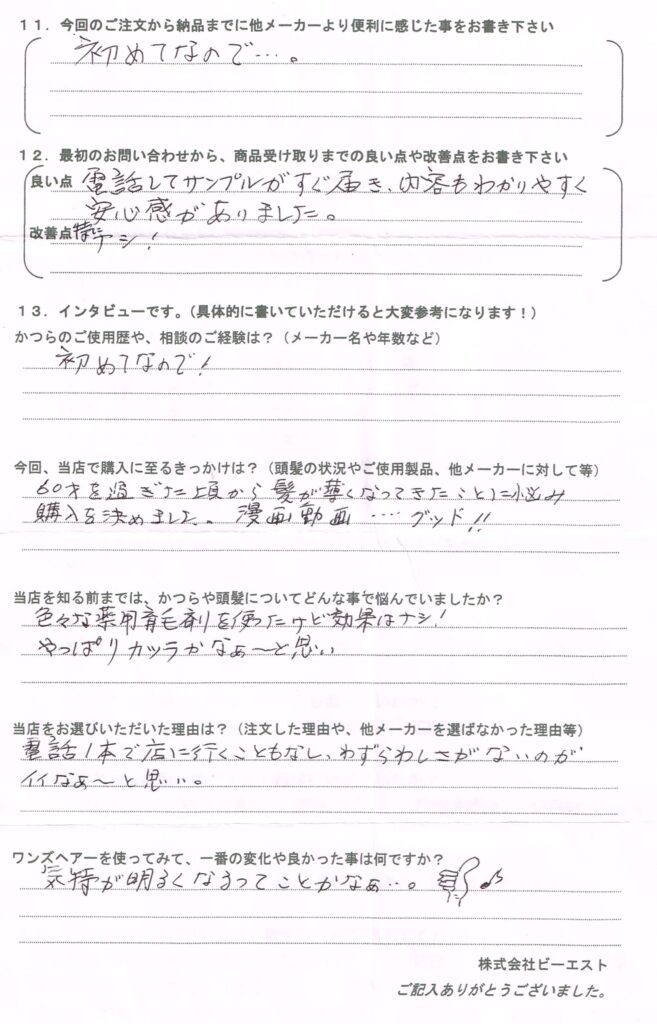 11．今回のご注文から納品までに他メーカーより便利に感じた事をお書き下さい
初めてなので…。
12．最初のお問い合わせから、商品受け取りまでの良い点や改善点をお書き下さい
良い点 電話してサンプルがすぐ届き、内容もわかりやすく
安心感がありました。
改善点 特にナシ！
13．インタビューです。（具体的に書いていただけると大変参考になります！）
かつらのご使用歴や、相談のご経験は？（メーカー名や年数など）
初めてなので！
今回、当店で購入に至るきっかけは？（頭髪の状況やご使用製品、他メーカーに対して等）
60才を過ぎた頃から髪が薄くなってきたことに悩み
購入を決めました。漫画動画……グッド!!
当店を知る前までは、かつらや頭髪についてどんな事で悩んでいましたか？
色々な薬用育毛剤を使ったけど効果はナシ！
やっぱりカツラかなぁ～と思い
当店をお選びいただいた理由は？（注文した理由や、他メーカーを選ばなかった理由等）
電話1本で店に行くこともなし、わずらわしさがないのが
イイなぁ～と思い。
ワンズヘアーを使ってみて、一番の変化や良かった事は何ですか？
気持が明るくなるってことかなぁ…。♪
株式会社ビーエスト
ご記入ありがとうございました。